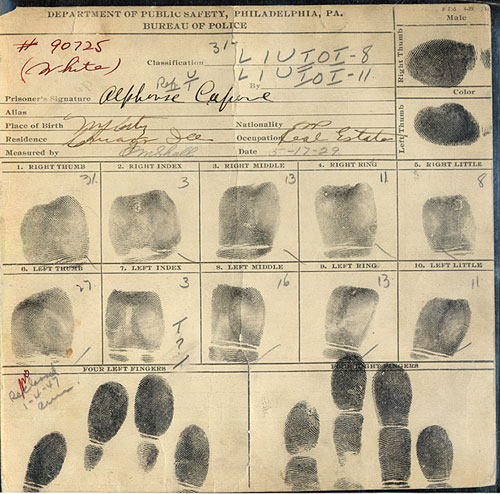 DEPARTMENT OF PUBLIC SAFETY, PHILADELPHIA, PA.
BUREAU OF POLICE
Male
# 90725
(White)
Classification
31
L 1 U I O I-8
L 1 U I O I-11
Ref U
T
By
Right Thumb
Prisoner's Signature Alphonse Capone
Color
Alias
Left Thumb
Place of Birth
Nationality
Residence Chicago Ill
Occupation Real Estate
Measured by
Date 5-17-29
1. RIGHT THUMB
2. RIGHT INDEX
3. RIGHT MIDDLE
4. RIGHT RING
5. RIGHT LITTLE
3
13
11
8
6. LEFT THUMB
7. LEFT INDEX
8. LEFT MIDDLE
9. LEFT RING
10. LEFT LITTLE
27
3
16
13
11
T
?
FOUR LEFT FINGERS
FINGERS